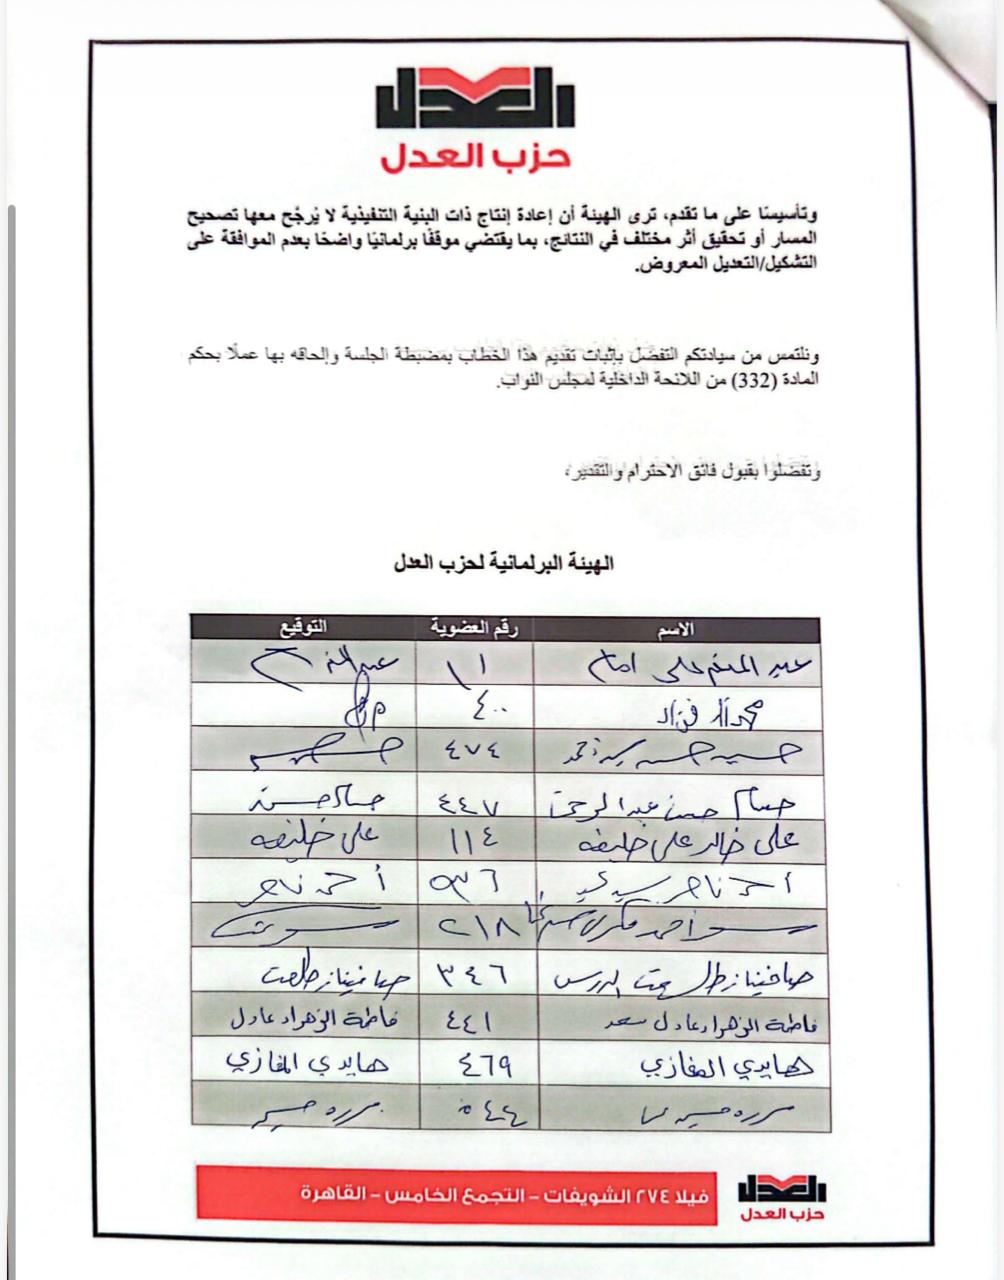 العدل
حزب العدل
وتأسيسًا على ما تقدم، ترى الهيئة أن إعادة إنتاج ذات البنية التنفيذية لا يُرجَّح معها تصحيح
المسار أو تحقيق أثر مختلف في النتائج، بما يقتضي موقفًا برلمانيًا واضحًا بعدم الموافقة على
التشكيل/التعديل المعروض.
ونلتمس من سيادتكم التفضل بإثبات تقديم هذا الخطاب بمضبطة الجلسة وإلحاقه بها عملًا بحكم
المادة (332) من اللائحة الداخلية لمجلس النواب.
وتفضلوا بقبول فائق الاحترام والتقدير،
الهيئة البرلمانية لحزب العدل
الاسم رقم العضوية التوقيع
عبد المنعم على امام ١١
محمد فؤاد ٤٠٠
حسين ٤٧٤
حسام حسن عبد الرحمن ٤٤٧ حسام حسن
على خالد على خليفه ١١٤ على خليفه
أحمد ناصر سيد ٥٣٦ أحمد ناصر
أحمد ٢١٨
صافيناز طلعت ٣٤٦ صافيناز طلعت
فاطمة الزهراء عادل سعد ٤٤١ فاطمة الزهراء عادل
هايدي المغازي ٤٦٩ هايدي المغازي
حسين ٥٤٤ حسين
فيلا ٢٧٤ الشويفات - التجمع الخامس - القاهرة
العدل
حزب العدل